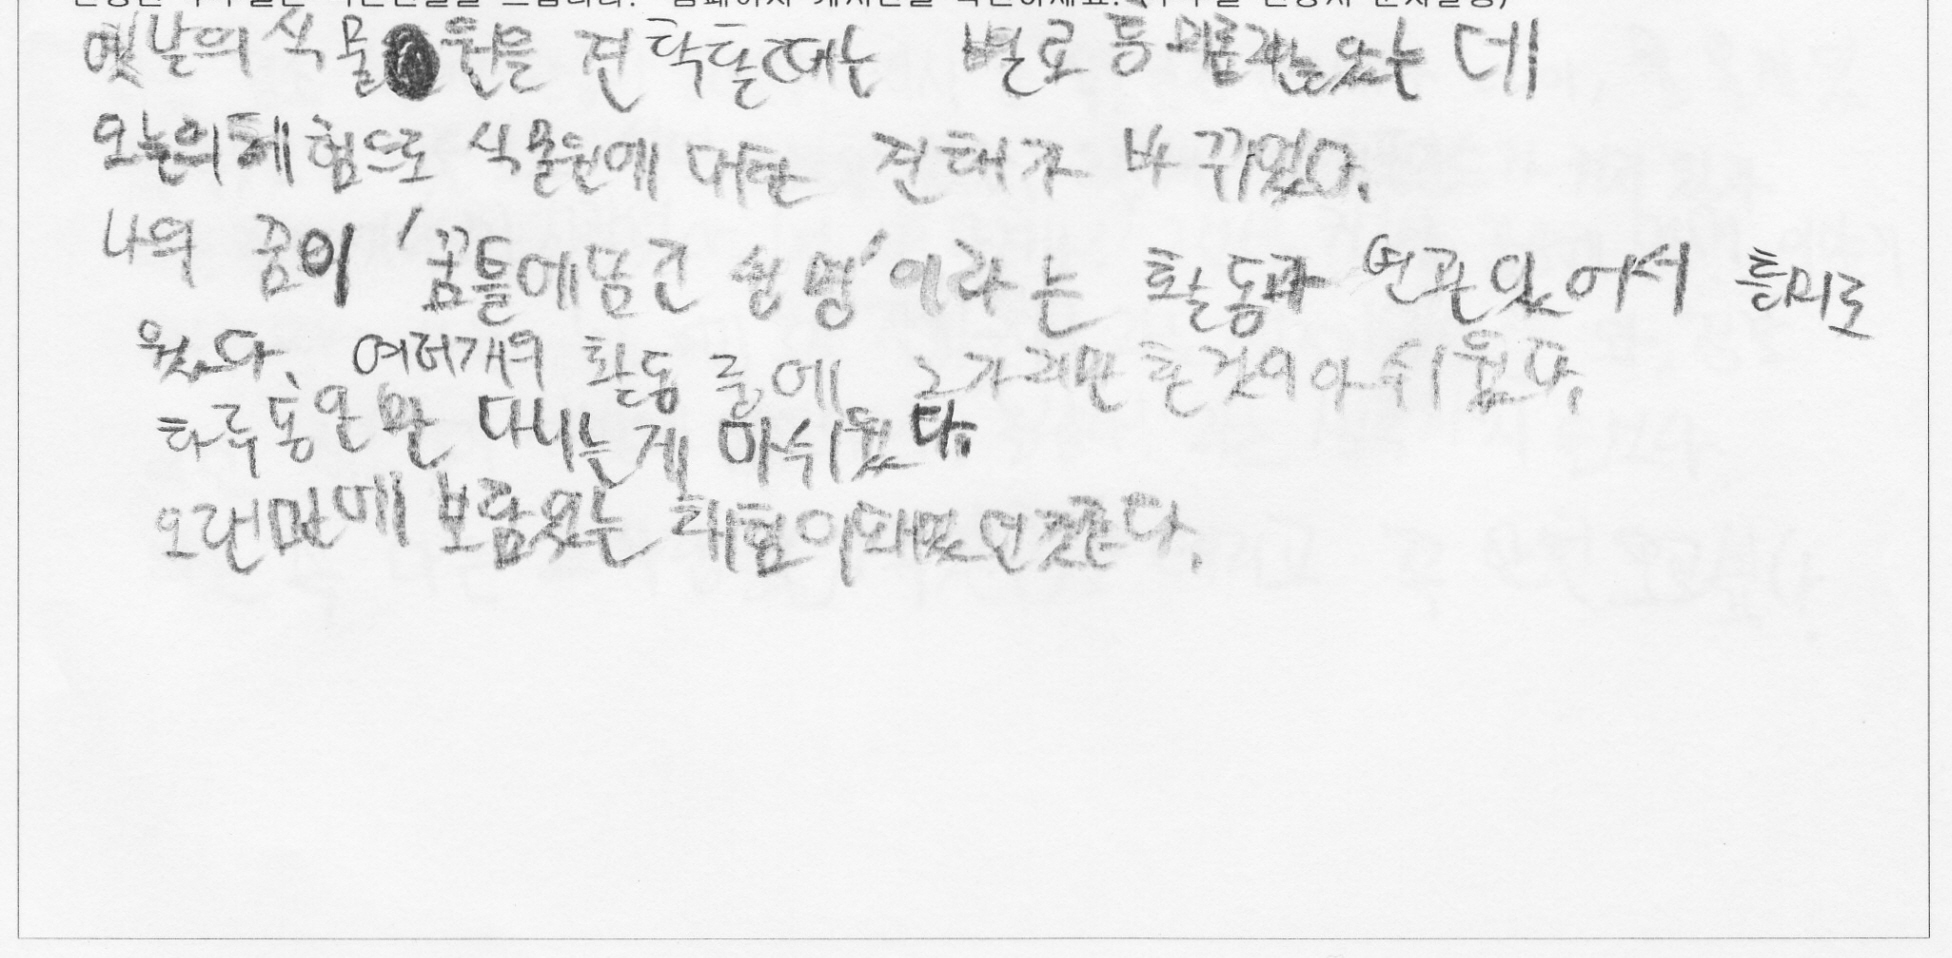 옛날의 식물원을 견학할때는 별로 흥미롭진 않았는데
오늘의 체험으로 식물원에 대한 견해가 바뀌었다.
나의 꿈이 '꿈틀에 담긴 생명'이라는 활동과 연관 있어서 흥미로
웠다. 여러개의 활동 중에 2가지만 한것이 아쉬웠다.
하루동안만 다니는게 아쉬웠다.
오랜만에 보람있는 체험이